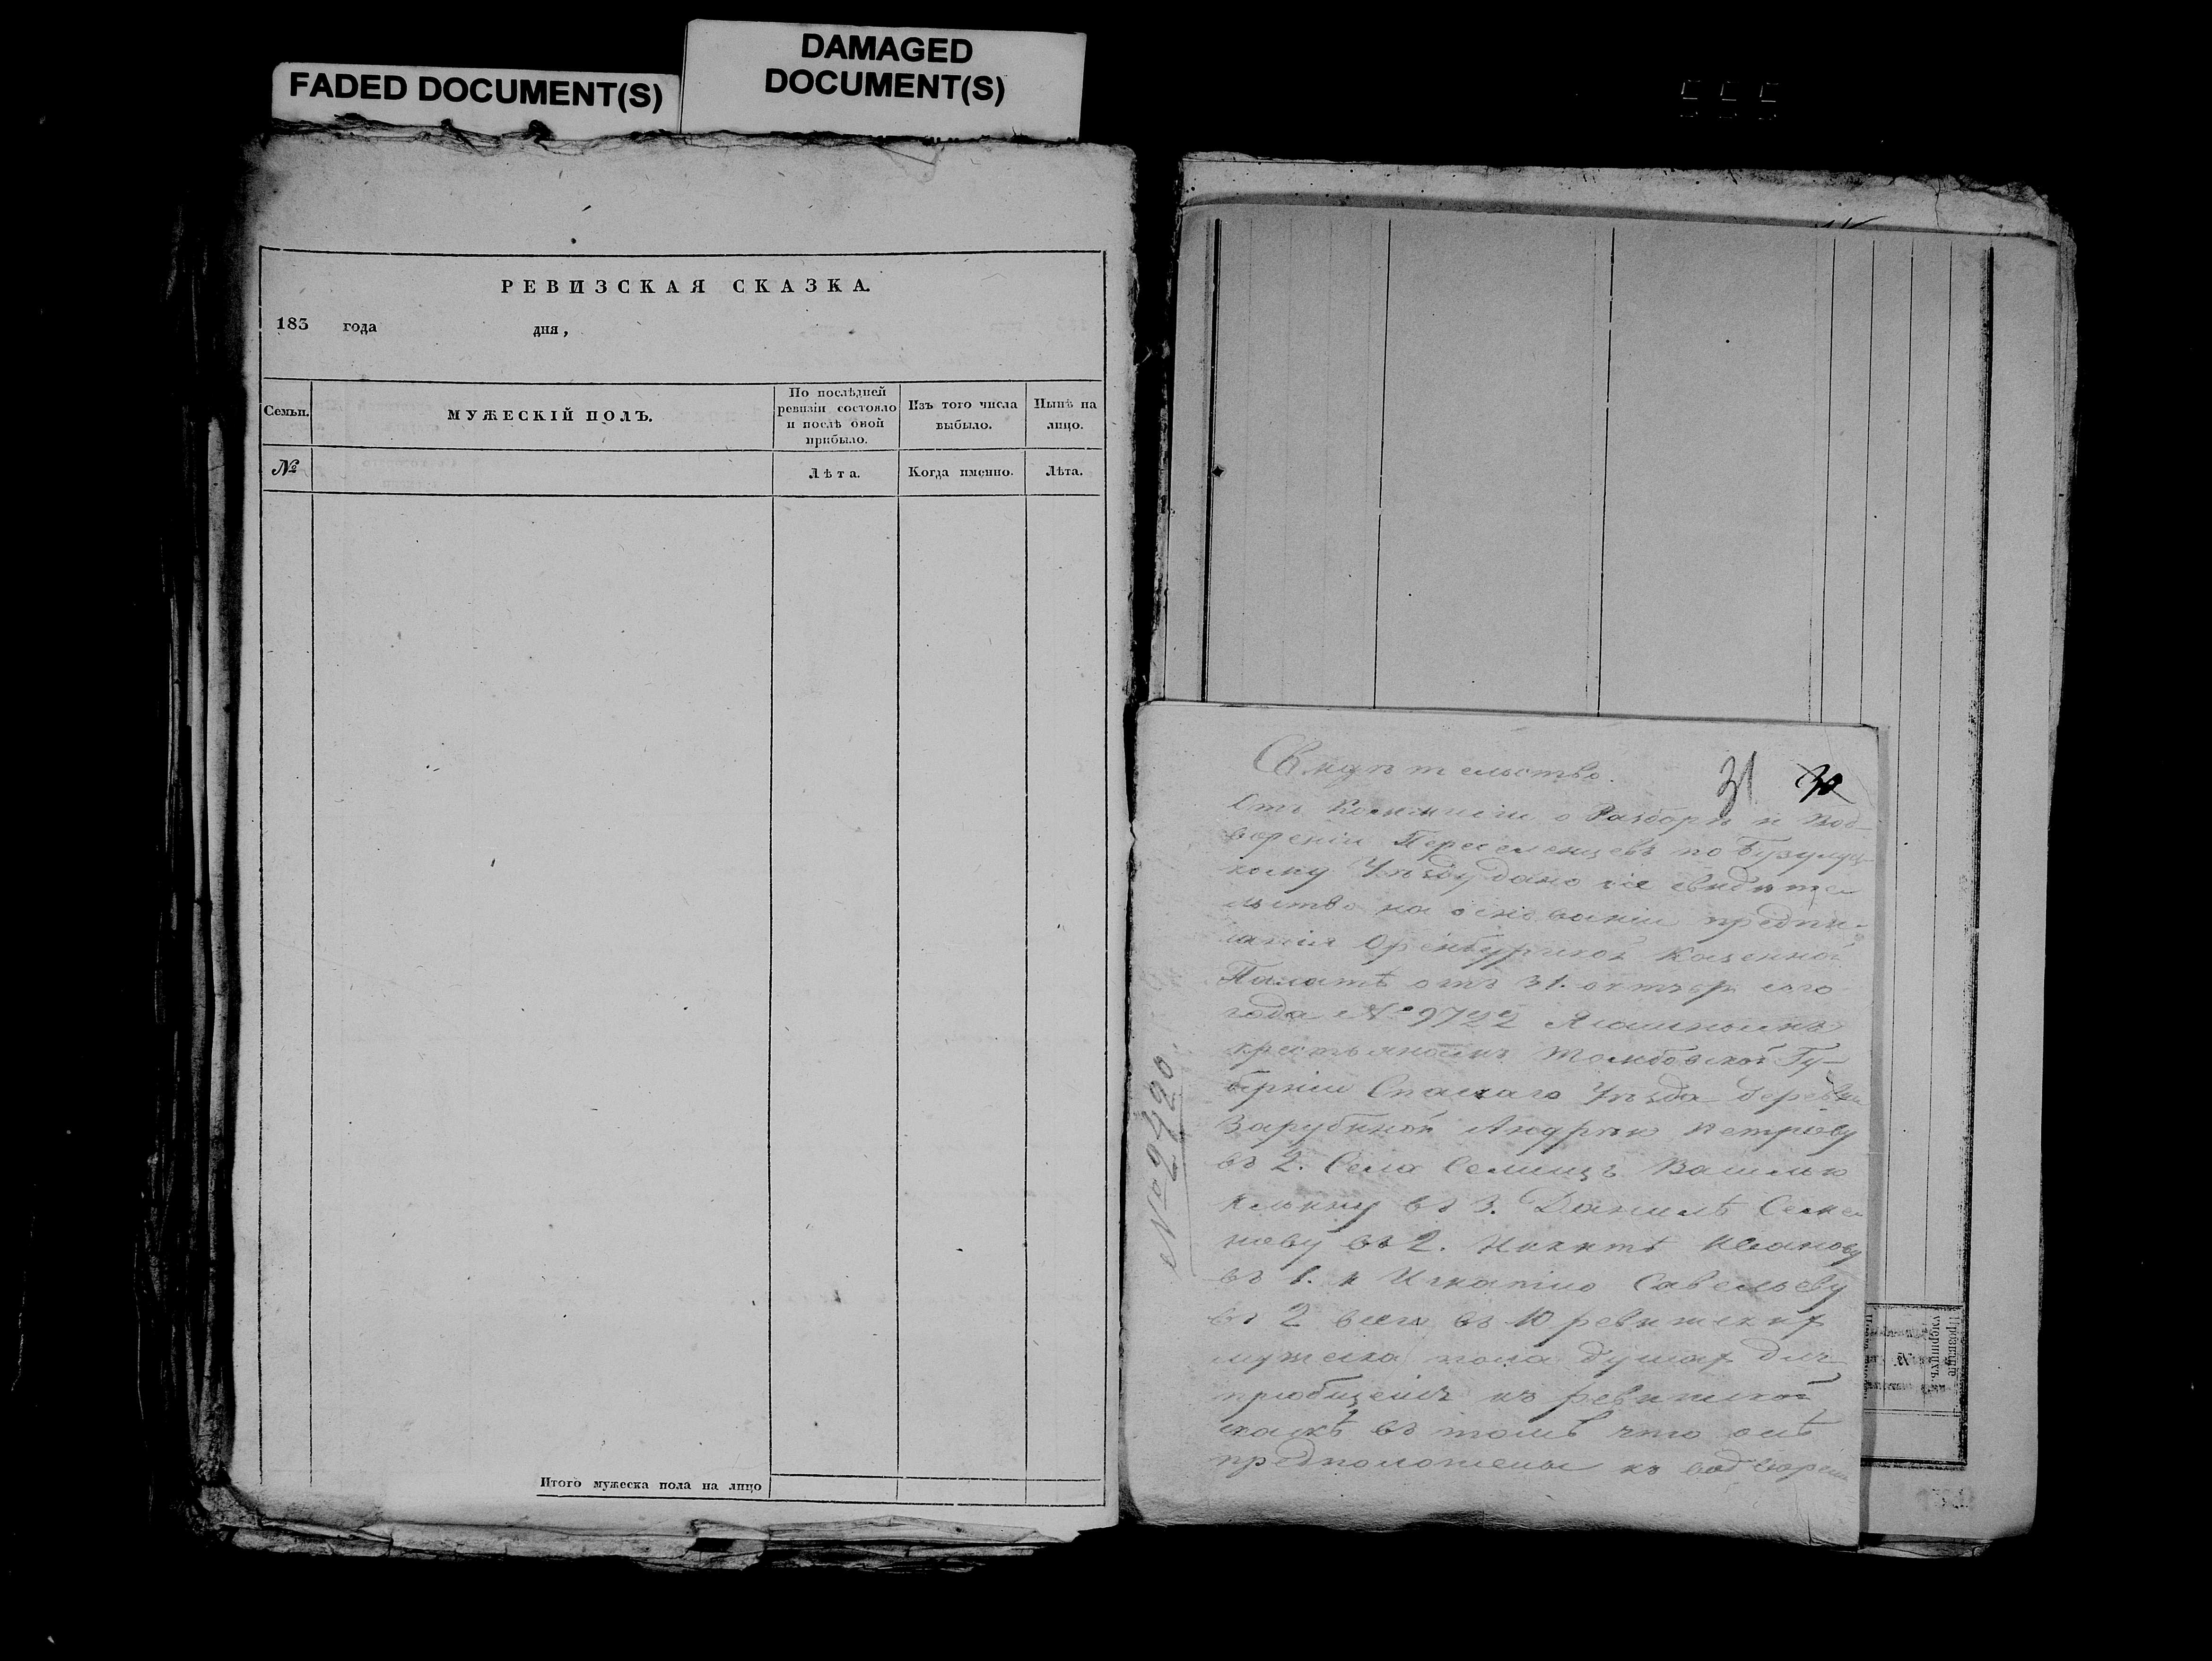 FADED DOCUMENT(S)
DAMAGED
DOCUMENT(S)
РЕВИЗСКАЯ СКАЗКА.
183 года дня,
Семьи.
МУЖЕСКІЙ ПОЛЪ.
По послѣдней
ревизіи состояло
и послѣ оной
прибыло.
Изъ того числа
выбыло.
Нынѣ на
лицо.
№
Лѣта.
Когда именно.
Лѣта.
Итого мужеска пола на лицо
31 30
Свидѣтельство.
Отъ Коммиссіи о Разборѣ и вод-
вореніи Переселенцевъ по Бузулуц-
кому Уѣзду дано сіе свидѣте-
льство на основаніи предпи-
санія Оренбургской Казенной
Палатѣ отъ 31. октябр. сего
года №9722
крестьяномъ Тамбовской Гу-
берніи Спаскаго Уѣзда деревни
Зарубиной Андрею Петрову
въ 2. Села Василью
въ 3. Данилѣ Семе-
нову въ 2. Никитѣ Иванову
въ 1. и Игнатію Савельеву
въ 2 всего въ 10 ревижскихъ
мужеска пола душахъ для
приобщенія къ ревижской
скаскѣ въ томъ что онѣ
предположены къ водворені
Прозваніе
умершихъ